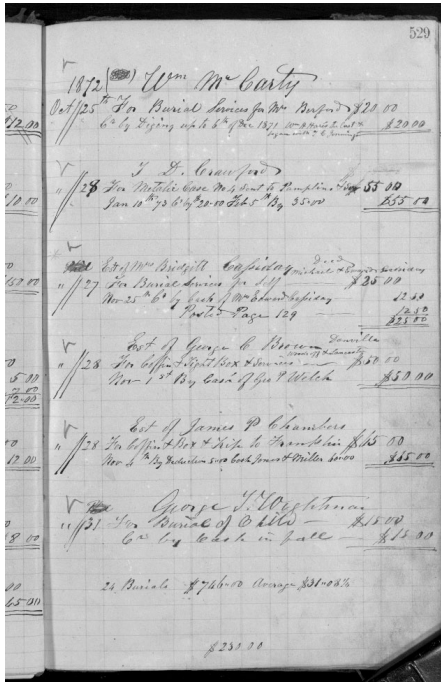 529
1872 Wm McCarty
Oct 25th For Burial Services for Mrs Berford $20.00
Cr by Diging up to 6th of Dec 1871 $20.00
T. D. Crawford
" 28 For Metalic Case No 4 sent to Pamplins 55 00
Jan 10th 73 Cr by 20-00 Feb 5th By 35-00 $55 00
Est of Mrs Bridgitt Cassiday
" 27 For Burial Services for Self — $25.00
Nov 25th Cr by Cash of Mr Edward Cassiday 12 50
Posted Page 129 12 50
$25 00
Est of George C. Brown Danville
" 28 For Coffin & Box & Services — $50 00
Nov 1st By Cash of Geo P Welch $50.00
Est of James P Chambers
" 28 For Coffin & Box & Trip to Franklin $65 00
Nov 4th By Deduction 5.00 Cash Jones & Miller 60.00 $65.00
George T. Wightman
" 31 For Burial of Child — $15.00
Cr by Cash in full — $15.00
24 Burials $746-00 Average $31-08⅓
$230.00
12.00
10.00
50.00
5.00
12.00
8 00
00
65.00